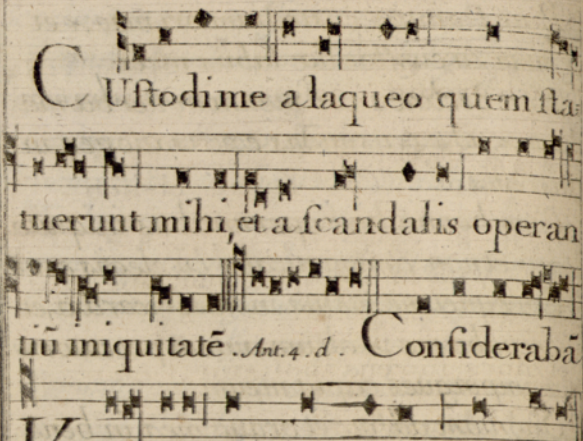 CUſtodi me a laqueo quem ſta
tuerunt mihi, et a ſcandalis operan
tiū iniquitatē. Ant. 4. d. Conſiderabā